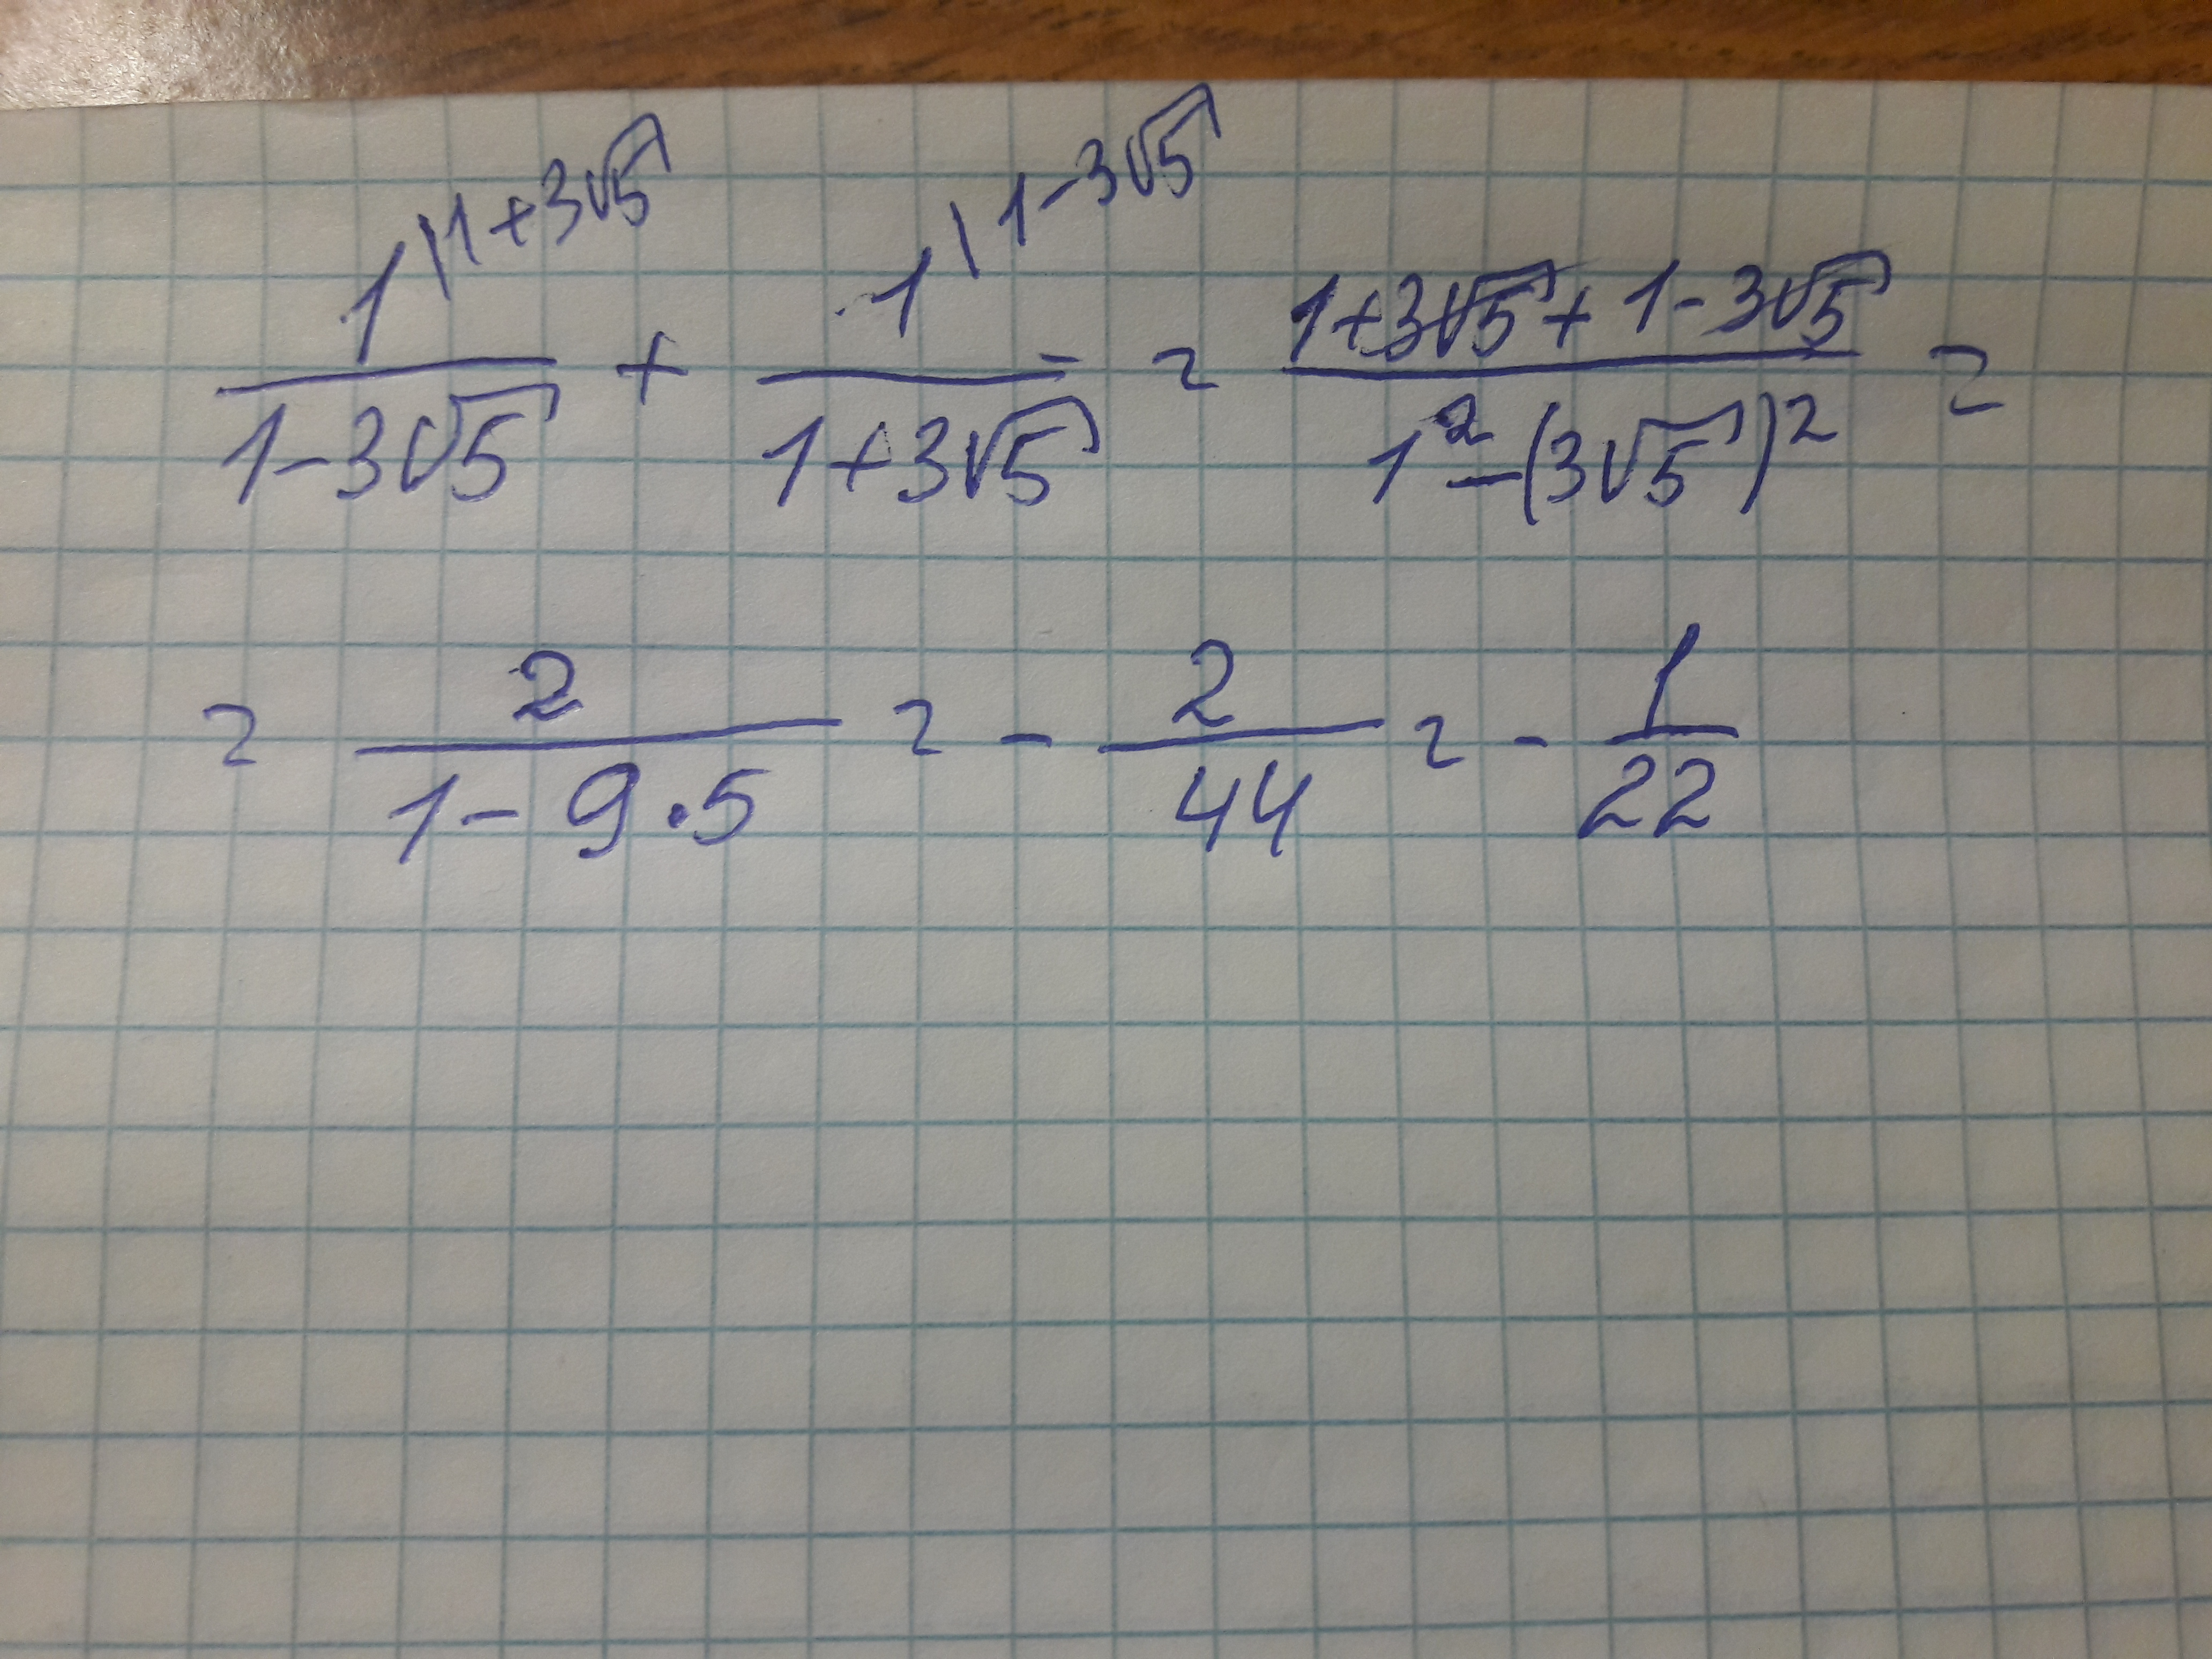 1\1+3√5 / 1-3√5 + 1\1-3√5 / 1+3√5 = 1+3√5+1-3√5 / 1²-(3√5)² =
= 2 / 1-9·5 = - 2/44 = - 1/22